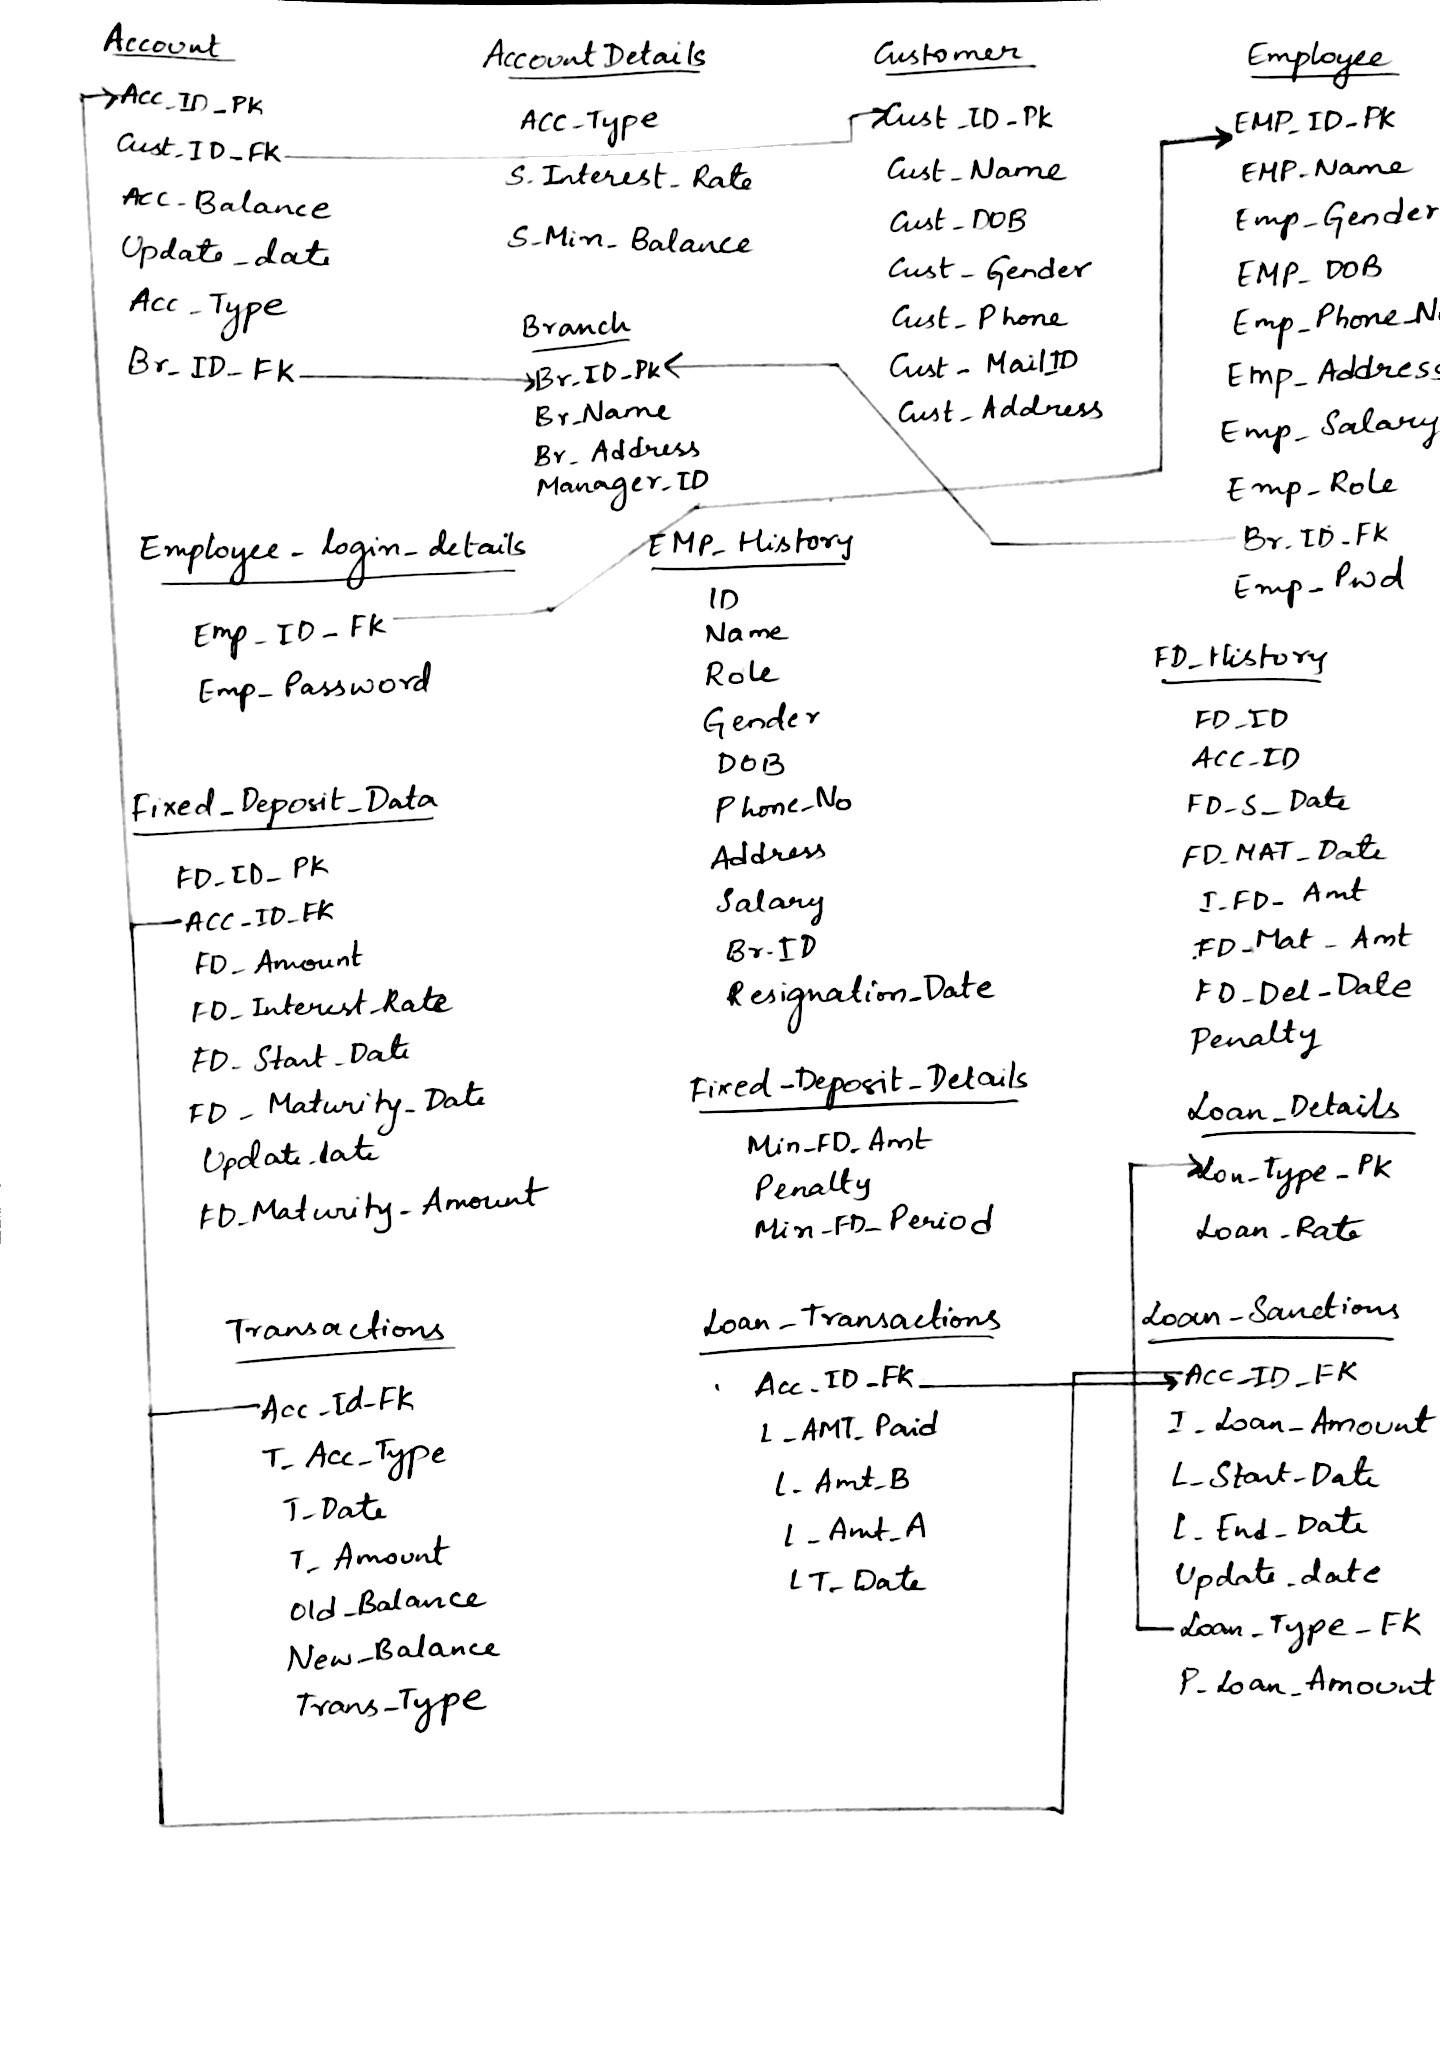 Account
Acc_ID_PK
Cust_ID_FK
Acc_Balance
Update_date
Acc_Type
Br_ID_FK
Account Details
Acc_Type
S.Interest_Rate
S_Min_Balance
Customer
Cust_ID_PK
Cust_Name
Cust_DOB
Cust_Gender
Cust_Phone
Cust_MailID
Cust_Address
Employee
EMP_ID_PK
EMP_Name
Emp_Gender
EMP_DOB
Emp_Phone_N
Emp_Address
Emp_Salary
Emp_Role
Br.ID_FK
Emp_Pwd
Branch
Br_ID_PK
Br_Name
Br_Address
Manager_ID
Employee_login_details
Emp_ID_FK
Emp_Password
EMP_History
ID
Name
Role
Gender
DOB
Phone_No
Address
Salary
Br.ID
Resignation_Date
FD_History
FD_ID
ACC_ID
FD_S_Date
FD_MAT_Date
I_FD_Amt
FD_Mat_Amt
FD_Del_Date
Penalty
Fixed_Deposit_Data
FD_ID_PK
ACC_ID_FK
FD_Amount
FD_Interest_Rate
FD_Start_Date
FD_Maturity_Date
Update_date
FD_Maturity_Amount
Fixed_Deposit_Details
Min_FD_Amt
Penalty
Min_FD_Period
Loan_Details
Lon_Type_PK
Loan_Rate
Transactions
Acc_Id_FK
T_Acc_Type
T_Date
T_Amount
Old_Balance
New_Balance
Trans_Type
Loan_Transactions
Acc_ID_FK
L_AMT_Paid
L_Amt_B
L_Amt_A
LT_Date
Loan_Sanctions
Acc_ID_FK
I_Loan_Amount
L_Start_Date
L_End_Date
Update_date
Loan_Type_FK
P_Loan_Amount